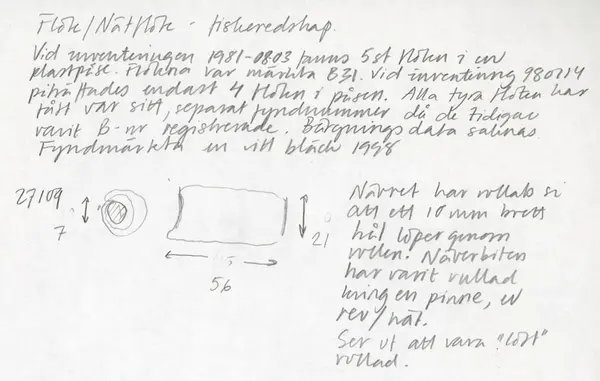 Flöte/Nätflöte - fiskeredskap.
Vid inventeringen 1981-0803 fanns 5 st flöten i en
plastpåse. Flötena var märkta B31. Vid inventering 980714
påträffades endast 4 flöten i påsen. Alla fyra flöten har
fått var sitt, separat fyndnummer då de tidigare
varit B-nr registrerade. Bärgningsdata saknas.
Fyndmärkta en vitt bläck 1998
27109
7
21
56
Nävret har rullats så
att ett 10 mm brett
hål löper genom
rullen. Näverbiten
har varit rullad
kring en pinne, ev
rev/nät.
Ser ut att vara "löst"
rullad.